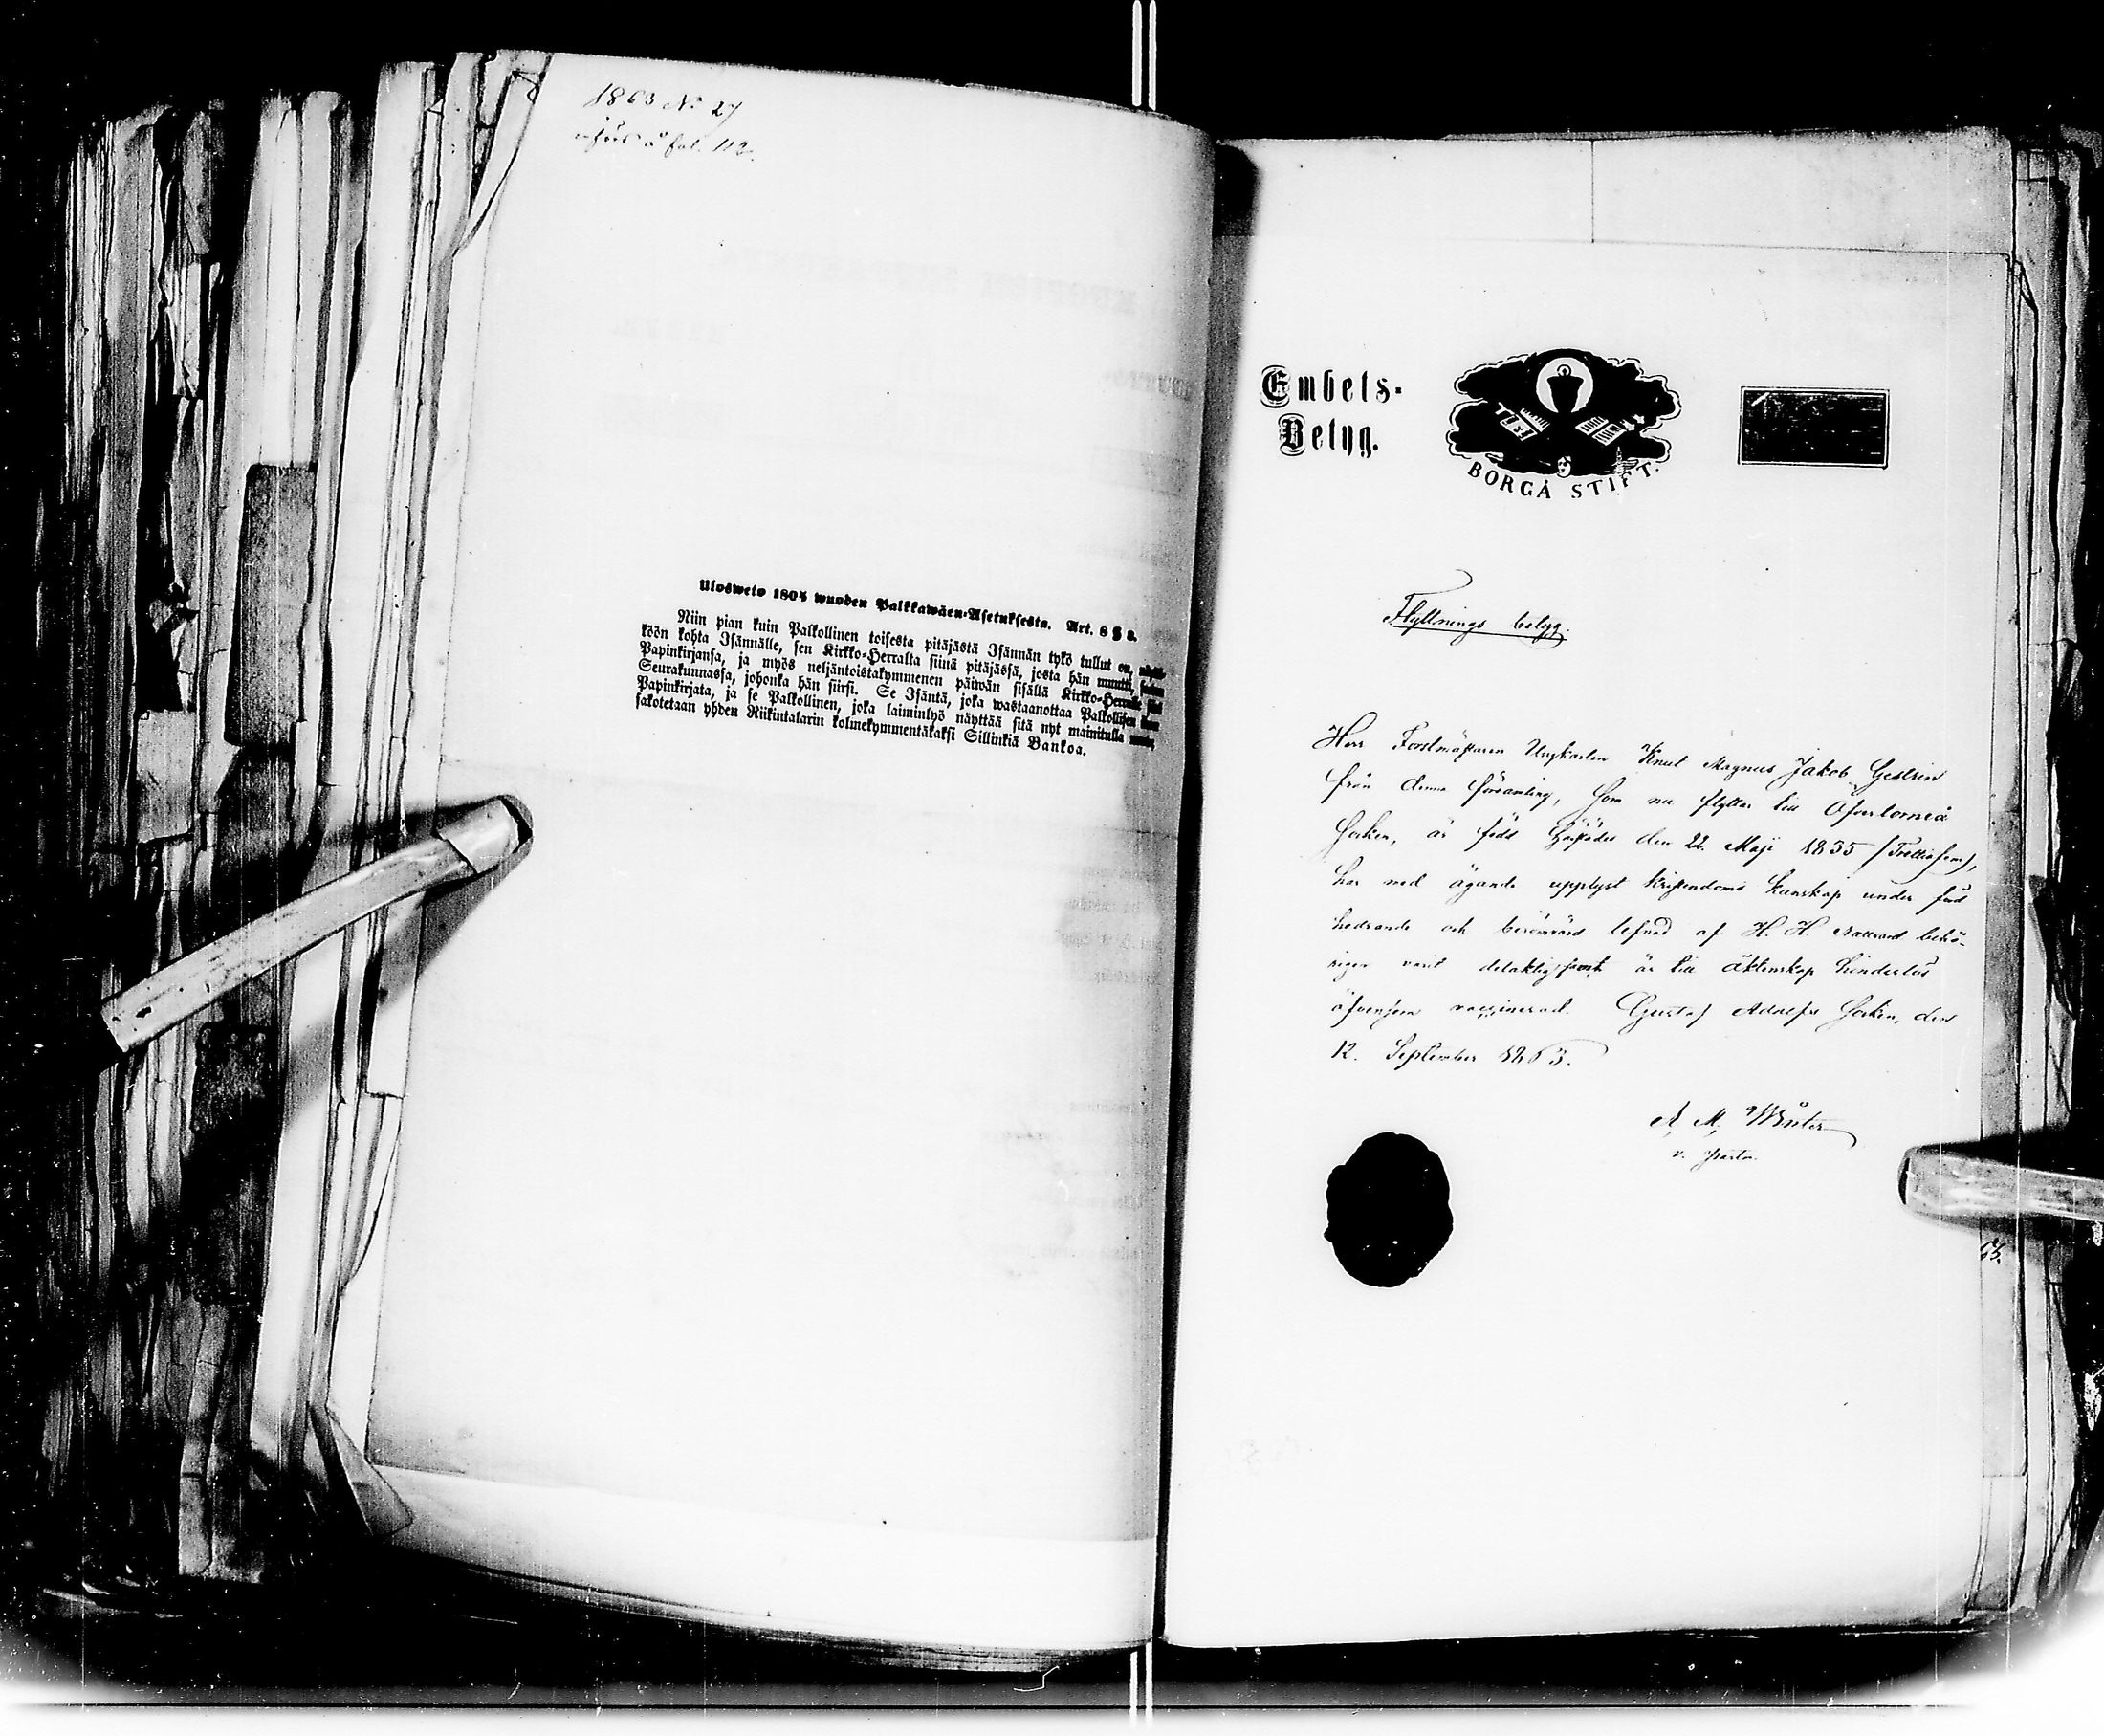 1863 No 27
införd å fol. 112.
Ulosweto 1805 wuoden Palkkawäen-Asetuksesta. Art. 8 § 2.
Niin pian kuin Palkollinen toisesta pitäjästä Isännän tykö tullut on,
köön kohta Isännälle, sen Kirkko-Herralta siinä pitäjässä, josta hän muutti,
Papinkirjansa, ja myös neljäntoistakymmenen päiwän sisällä Kirkko-Herralle
Seurakunnassa, johonka hän siirsi. Se Isäntä, joka wastaanottaa Palkollisen
Papinkirjata, ja se Palkollinen, joka laiminlyö näyttää sitä nyt mainitulla
sakotetaan yhden Riikintalarin kolmekymmentäkaksi Sillinkiä Bankoa.
Embets-
Betyg.
BORGÅ STIFT.
Flyttnings betyg.
Herr Forstmästaren Ungkarlen Knut Magnus Jakob Gestrin
från denna församling, som nu flyttar till Öfvertorneå
Socken, är född den 22 Maji 1835 (Trettiofem),
har med ägande upplyst kristendoms kunskap under
hedrande och berömvärd lefnad af H. H. Nattvard behö-
rigen varit delaktig samt är till äktenskap hinderlös
äfvensom vaccinerad. Gustaf Adolfs Socken, den
12. September 1863.
A. M. Winter
v. Pastor.